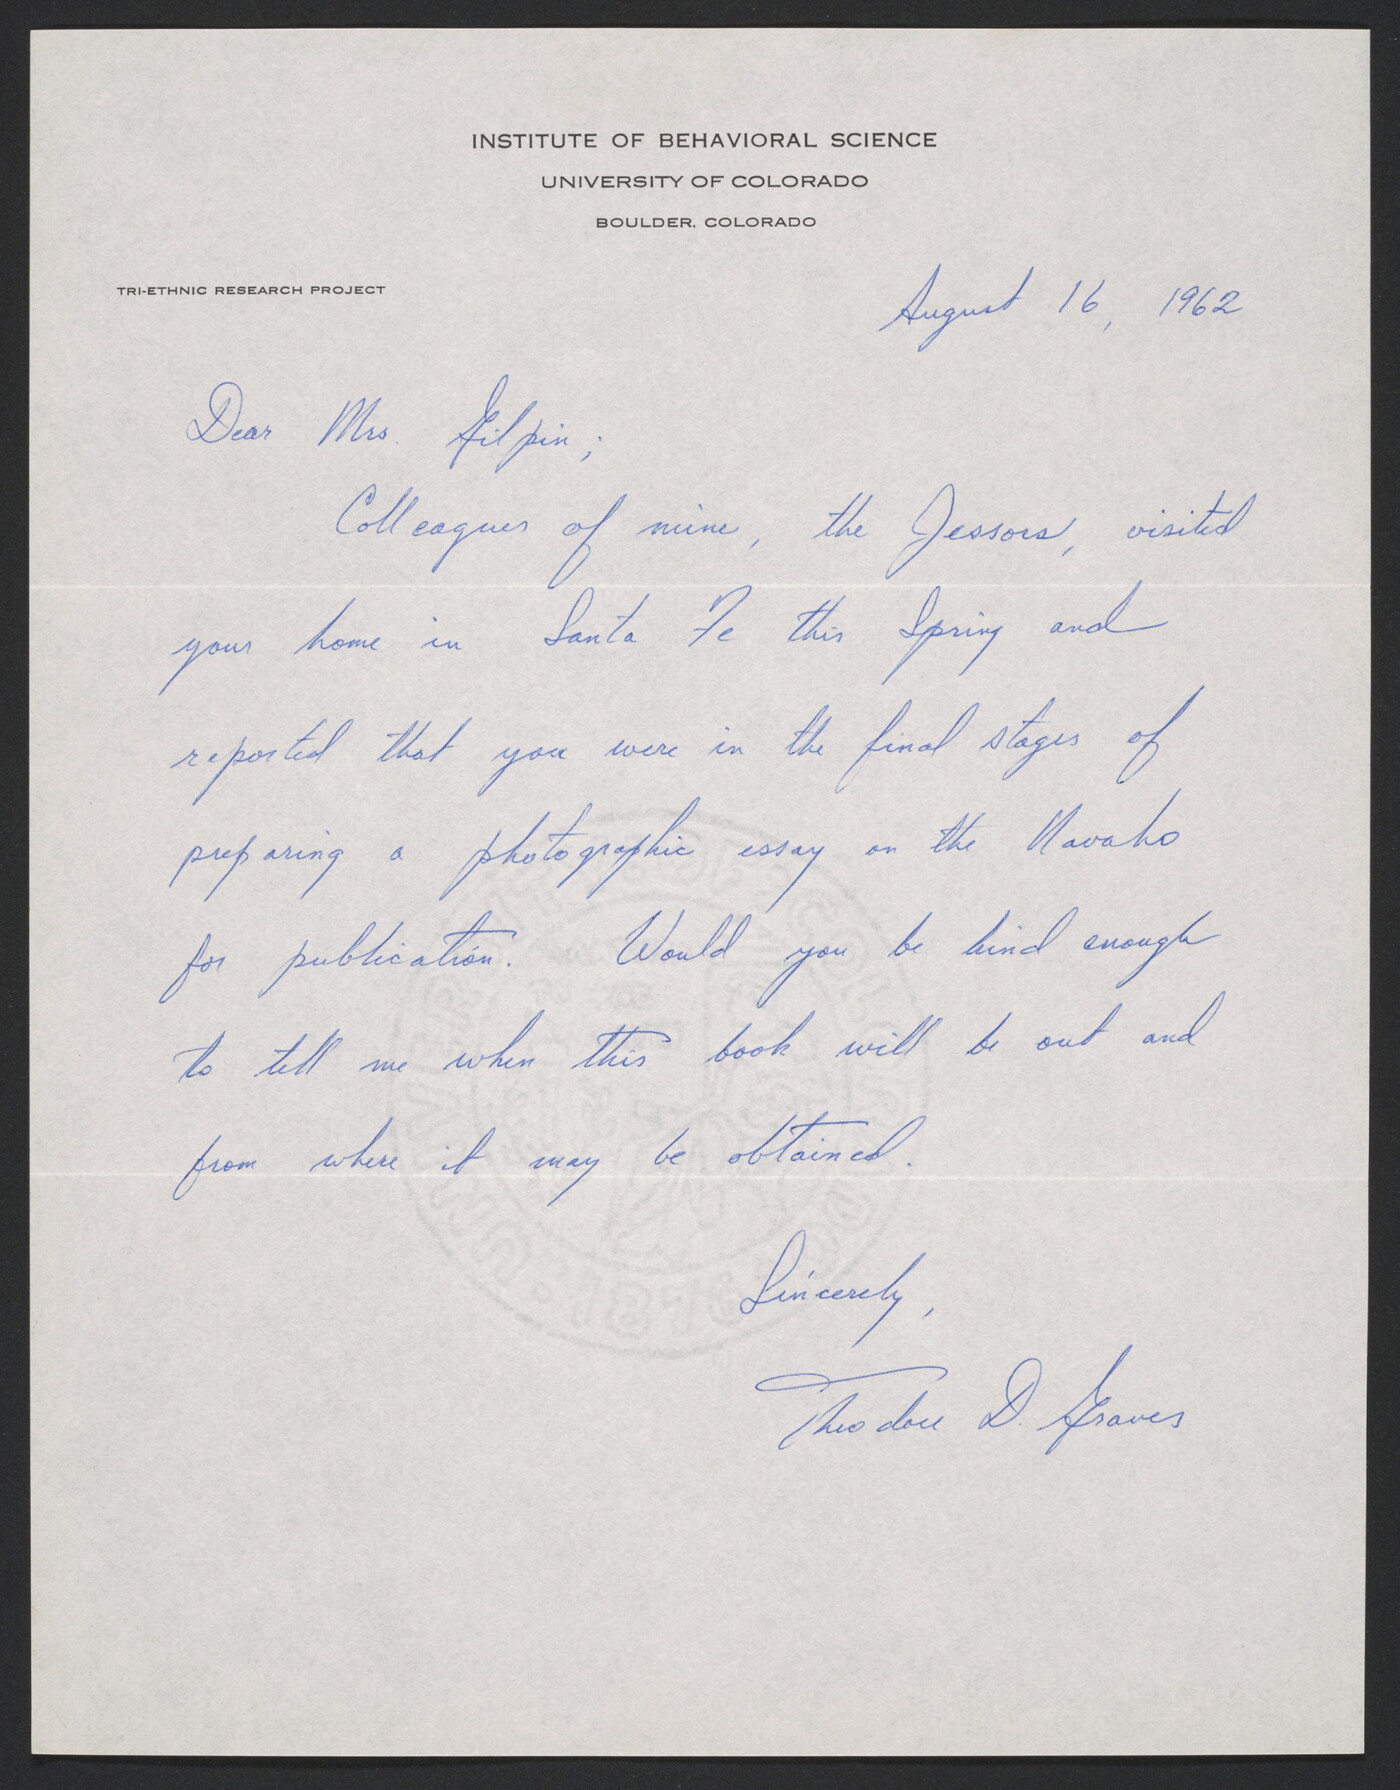 INSTITUTE OF BEHAVIORAL SCIENCE
UNIVERSITY OF COLORADO
BOULDER, COLORADO
TRI-ETHNIC RESEARCH PROJECT
August 16, 1962
Dear Mrs. Gilpin;
Colleagues of mine, the Jessors, visited
your home in Santa Fe this Spring and
reported that you were in the final stages of
preparing a photographic essay on the Navaho
for publication. Would you be kind enough
to tell me when this book will be out and
from where it may be obtained.
Sincerely,
Theodore D. Graves